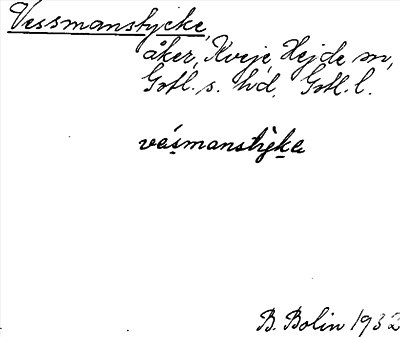 Vessmanstycke,
åker, Kveje, Hejde sn,
Gotl. s. hd, Gotl. l.
vásmanstỳka
B. Bolin 1932